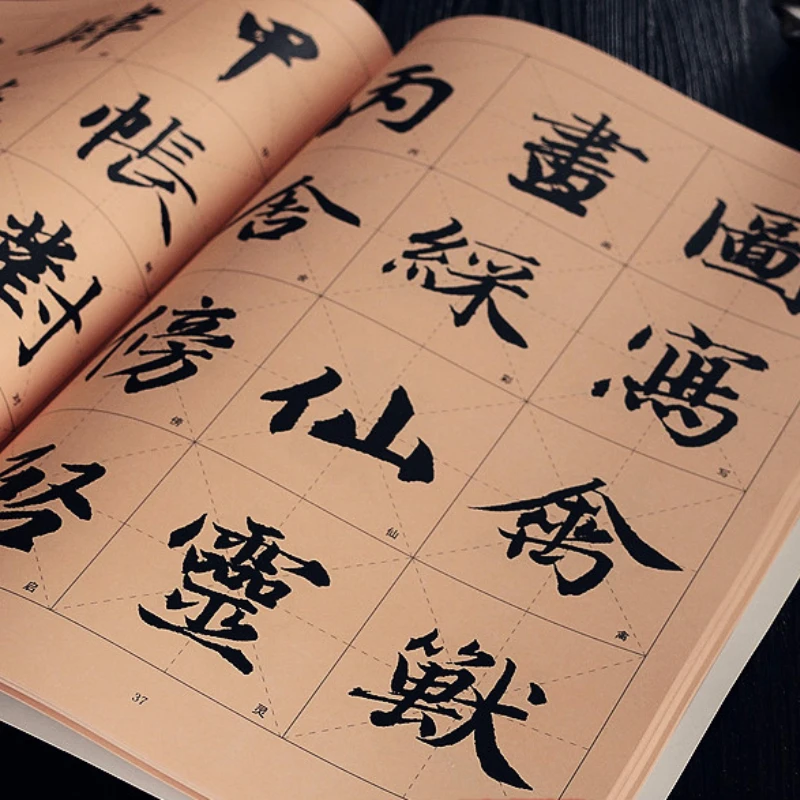 圖寫禽獸
写
禽
畫綵仙靈
彩
仙
灵
丙舍傍啓
舍
傍
启
甲帳對
对
37